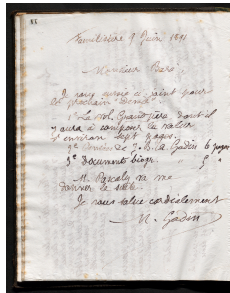 88
Familistère 9 Juin 1891
Monsieur
Je vous envoie ci-joint pour
le prochain "Devoir"
1° La vol.
y aura à composer la valeur
d'environ sept pages.
2° Dossier de J. B. A. Godin le
3° Documents biogr. 5 "
M. Pascaly va me
donner la suite.
Je vous salue cordialement
M. Godin